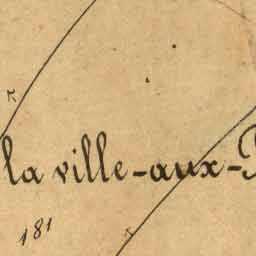 la ville-aux-
181